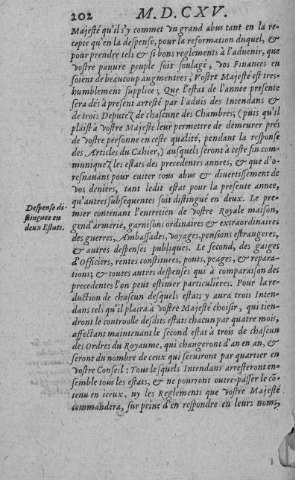 202 M. D. C X V.
Majesté qu'il s'y commet vn grand abus tant en la re-
cepte qu'en la despense, pour la reformation duquel, &
pour prendre tels & si bons reglements à l'aduenir, que
vostre pauure peuple soit soulagé, vos Finances en
soient de beaucoup augmentees; Vostre Majesté est tres-
humblement supplice, Que l'estat de l'annee presente
sera dés à present arresté par l'aduis des Intendans &
de trois Deputez de chacune des Chambres, (puis qu'il
plaist à vostre Majesté leur permettre de demeurer prés
de vostre personne en ceste qualité, pendant la response
des Articles du Cahier,) ausquels seront à ceste fin com-
muniquez les estats des precedentes annees, & que d'o-
resnauant pour euiter tous abus & diuertissement de
vos deniers, tant ledit estat pour la presente annee,
qu'autres subsequentes soit distingué en deux. Le pre-
mier contenant l'entretien de vostre Royale maison,
gend'armerie, garnisons ordinaires & extraordinaires
des guerres, Ambassades, voyages, pensions estrangeres,
& autres despenses publiques. Le second, des gaiges
d'Officiers, rentes constituees, ponts, peages, & repara-
tions; & toutes autres despenses qui à comparaison des
precedentes l'on peut estimer particulieres. Pour la re-
duction de chacun desquels estats y aura trois Inten-
dans tels qu'il plaira à vostre Majesté choisir, qui tien-
dront le controolle desdits estats chacun par quatre mois,
affectant maintenant le second estat à trois de chacun
des Ordres du Royaume, qui changeront d'an en an, &
seront du nombre de ceux qui seruiront par quartier en
vostre Conseil: Tous lesquels Intendans arresteront en-
semble tous les estats, & ne pourront outre-passer le co-
tenu en iceux, ny les Reglements que vostre Majesté
commandera, sur peine d'en respondre en leurs noms,
Despense di-
stinguee en
deux Estats.